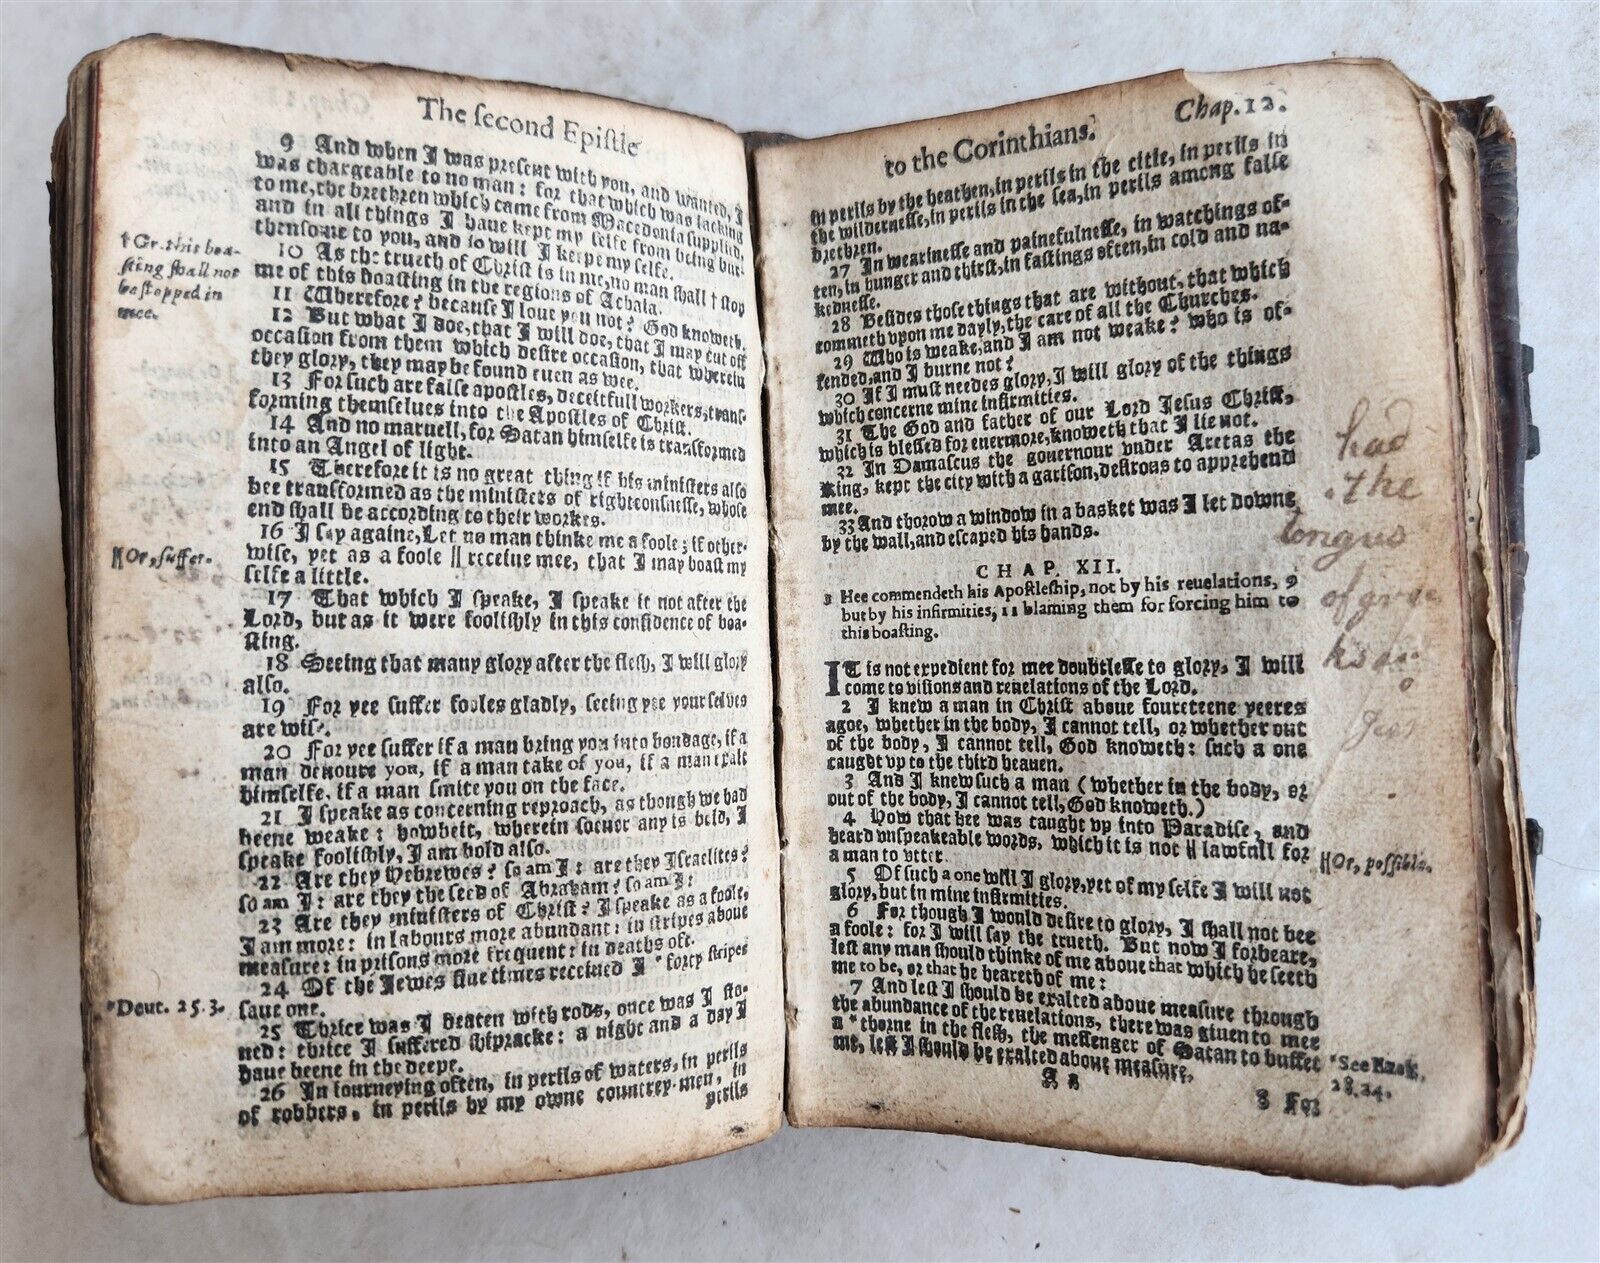 The ſecond Epiſtle
9 And when I was preſent with you, and wanted, I
was chargeable to no man: for that which was lacking
to me, the brethren which came from Macedonia ſupplied,
and in all things I haue kept my ſelfe from being bur-
thenſome to you, and ſo will I keepe my ſelfe.
10 As the trueth of Chriſt is in me, no man ſhall † ſtop
me of this boaſting in the regions of Achaia.
11 Wherefore? becauſe I loue you not? God knoweth.
12 But what I doe, that I will doe, that I may cut off
occaſion from them which deſire occaſion, that wherein
they glory, they may be found euen as wee.
13 For ſuch are falſe apoſtles, deceitfull workers, tranſ-
forming themſelues into the Apoſtles of Chriſt.
14 And no maruell, for Satan himſelfe is tranſformed
into an Angel of light.
15 Therefore it is no great thing if his miniſters alſo
bee tranſformed as the miniſters of righteouſneſſe, whoſe
end ſhall be according to their workes.
16 I ſay againe, Let no man thinke me a foole; if other-
wiſe, yet as a foole || receiue mee, that I may boaſt my
ſelfe a little.
17 That which I ſpeake, I ſpeake it not after the
Lord, but as it were fooliſhly in this confidence of boa-
ſting.
18 Seeing that many glory after the fleſh, I will glory
alſo.
19 For yee ſuffer fooles gladly, ſeeing yee your ſelves
are wiſe.
20 For yee ſuffer if a man bring you into bondage, if a
man deuoure you, if a man take of you, if a man exalt
himſelfe, if a man ſmite you on the face.
21 I ſpeake as concerning reproach, as though we had
beene weake: howbeit, wherein ſoeuer any is bold, I
ſpeake fooliſhly, I am bold alſo.
22 Are they Hebrewes? ſo am I: are they Iſraelites?
ſo am I: are they the ſeed of Abraham? ſo am I:
23 Are they miniſters of Chriſt? I ſpeake as a foole,
I am more: in labours more abundant: in ſtripes aboue
meaſure: in priſons more frequent: in deaths oft.
24 Of the Jewes fiue times receiued I * forty ſtripes
ſaue one.
25 Thrice was I beaten with rods, once was I ſto-
ned: thrice I ſuffered ſhipracke: a night and a day I
haue beene in the deepe.
26 In iourneying often, in perils of waters, in perils
of robbers, in perils by my owne countrey-men, in
perils
† Gr. this boa-
ſting ſhall not
be ſtopped in
mee.
|| Or, ſuffer.
* Deut. 25.3.
to the Corinthians. Chap. 12.
in perils by the heathen, in perils in the citie, in perils in
the wilderneſſe, in perils in the ſea, in perils among falſe
brethren.
27 In wearineſſe and painefulneſſe, in watchings of-
ten, in hunger and thirſt, in faſtings often, in cold and na-
kedneſſe.
28 Beſides thoſe things that are without, that which
commeth vpon me dayly, the care of all the Churches.
29 Who is weake, and I am not weake? who is of-
fended, and I burne not?
30 If I muſt needes glory, I will glory of the things
which concerne mine infirmities.
31 The God and father of our Lord Jeſus Chriſt,
which is bleſſed for euermore, knoweth that I lie not.
32 In Damaſcus the gouernour vnder Aretas the
King, kept the city with a gariſon, deſirous to apprehend
mee.
33 And thorow a window in a basket was I let downe
by the wall, and eſcaped his hands.
CHAP. XII.
1 Hee commendeth his Apoſtleſhip, not by his reuelations, 9
but by his infirmities, 11 blaming them for forcing him to
this boaſting.
IT is not expedient for mee doubtleſſe to glory, I will
come to viſions and reuelations of the Lord.
2 I knew a man in Chriſt aboue foureteene yeeres
agoe, whether in the body, I cannot tell, or whether out
of the body, I cannot tell, God knoweth: ſuch a one
caught vp to the third heauen.
3 And I knew ſuch a man (whether in the body, or
out of the body, I cannot tell, God knoweth.)
4 How that hee was caught vp into Paradiſe, and
heard vnſpeakeable words, which it is not || lawfull for
a man to vtter.
5 Of ſuch a one will I glory, yet of my ſelfe I will not
glory, but in mine infirmities.
6 For though I would deſire to glory, I ſhall not bee
a foole: for I will ſay the trueth. But now I forbeare,
leſt any man ſhould thinke of me aboue that which he ſeeth
me to be, or that he heareth of me:
7 And leſt I ſhould be exalted aboue meaſure through
the abundance of the reuelations, there was giuen to mee
a * thorne in the fleſh, the meſſenger of Satan to buffet
me, leſt I ſhould be exalted aboue meaſure.
8 For
had
the
tongus
|| Or, poſſible.
* See Ezek.
28.24.